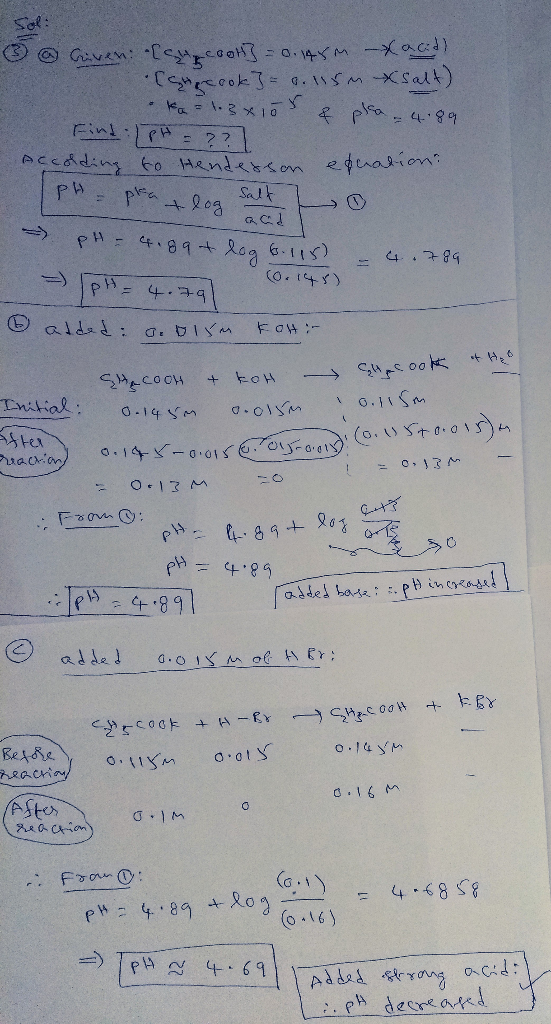 Sol:
③ ⓐ Given: • [C₂H₅COOH] = 0.145M → (acid)
• [C₂H₅COOK] = 0.115M → (salt)
• Ka = 1.3 × 10⁻⁵ & pKa = 4.89
Find: pH = ??
According to Henderson equation:
pH = pKa + log Salt/acid → ①
⇒ pH = 4.89 + log (0.115)/(0.145) = 4.789
⇒ pH = 4.79
ⓑ added: 0.015M KOH :-
C₂H₅COOH + KOH → C₂H₅COOK + H₂O
Initial: 0.145M 0.015M 0.115M
After reaction 0.145-0.015 0.015-0.015 (0.115+0.015)M
= 0.13M =0 = 0.13M –
∴ From ①: pH = 4.89 + log 0.13/0.13 → 0
pH = 4.89
∴ pH = 4.89 added base: ∴ pH increased
ⓒ added 0.015M of HBr:
C₂H₅COOK + H-Br → C₂H₅COOH + KBr
Before reaction 0.115M 0.015 0.145M –
After reaction 0.1M 0 0.16M –
∴ From ①:
pH = 4.89 + log (0.1)/(0.16) = 4.6858
⇒ pH ≈ 4.69
Added strong acid:
∴ pH decreased